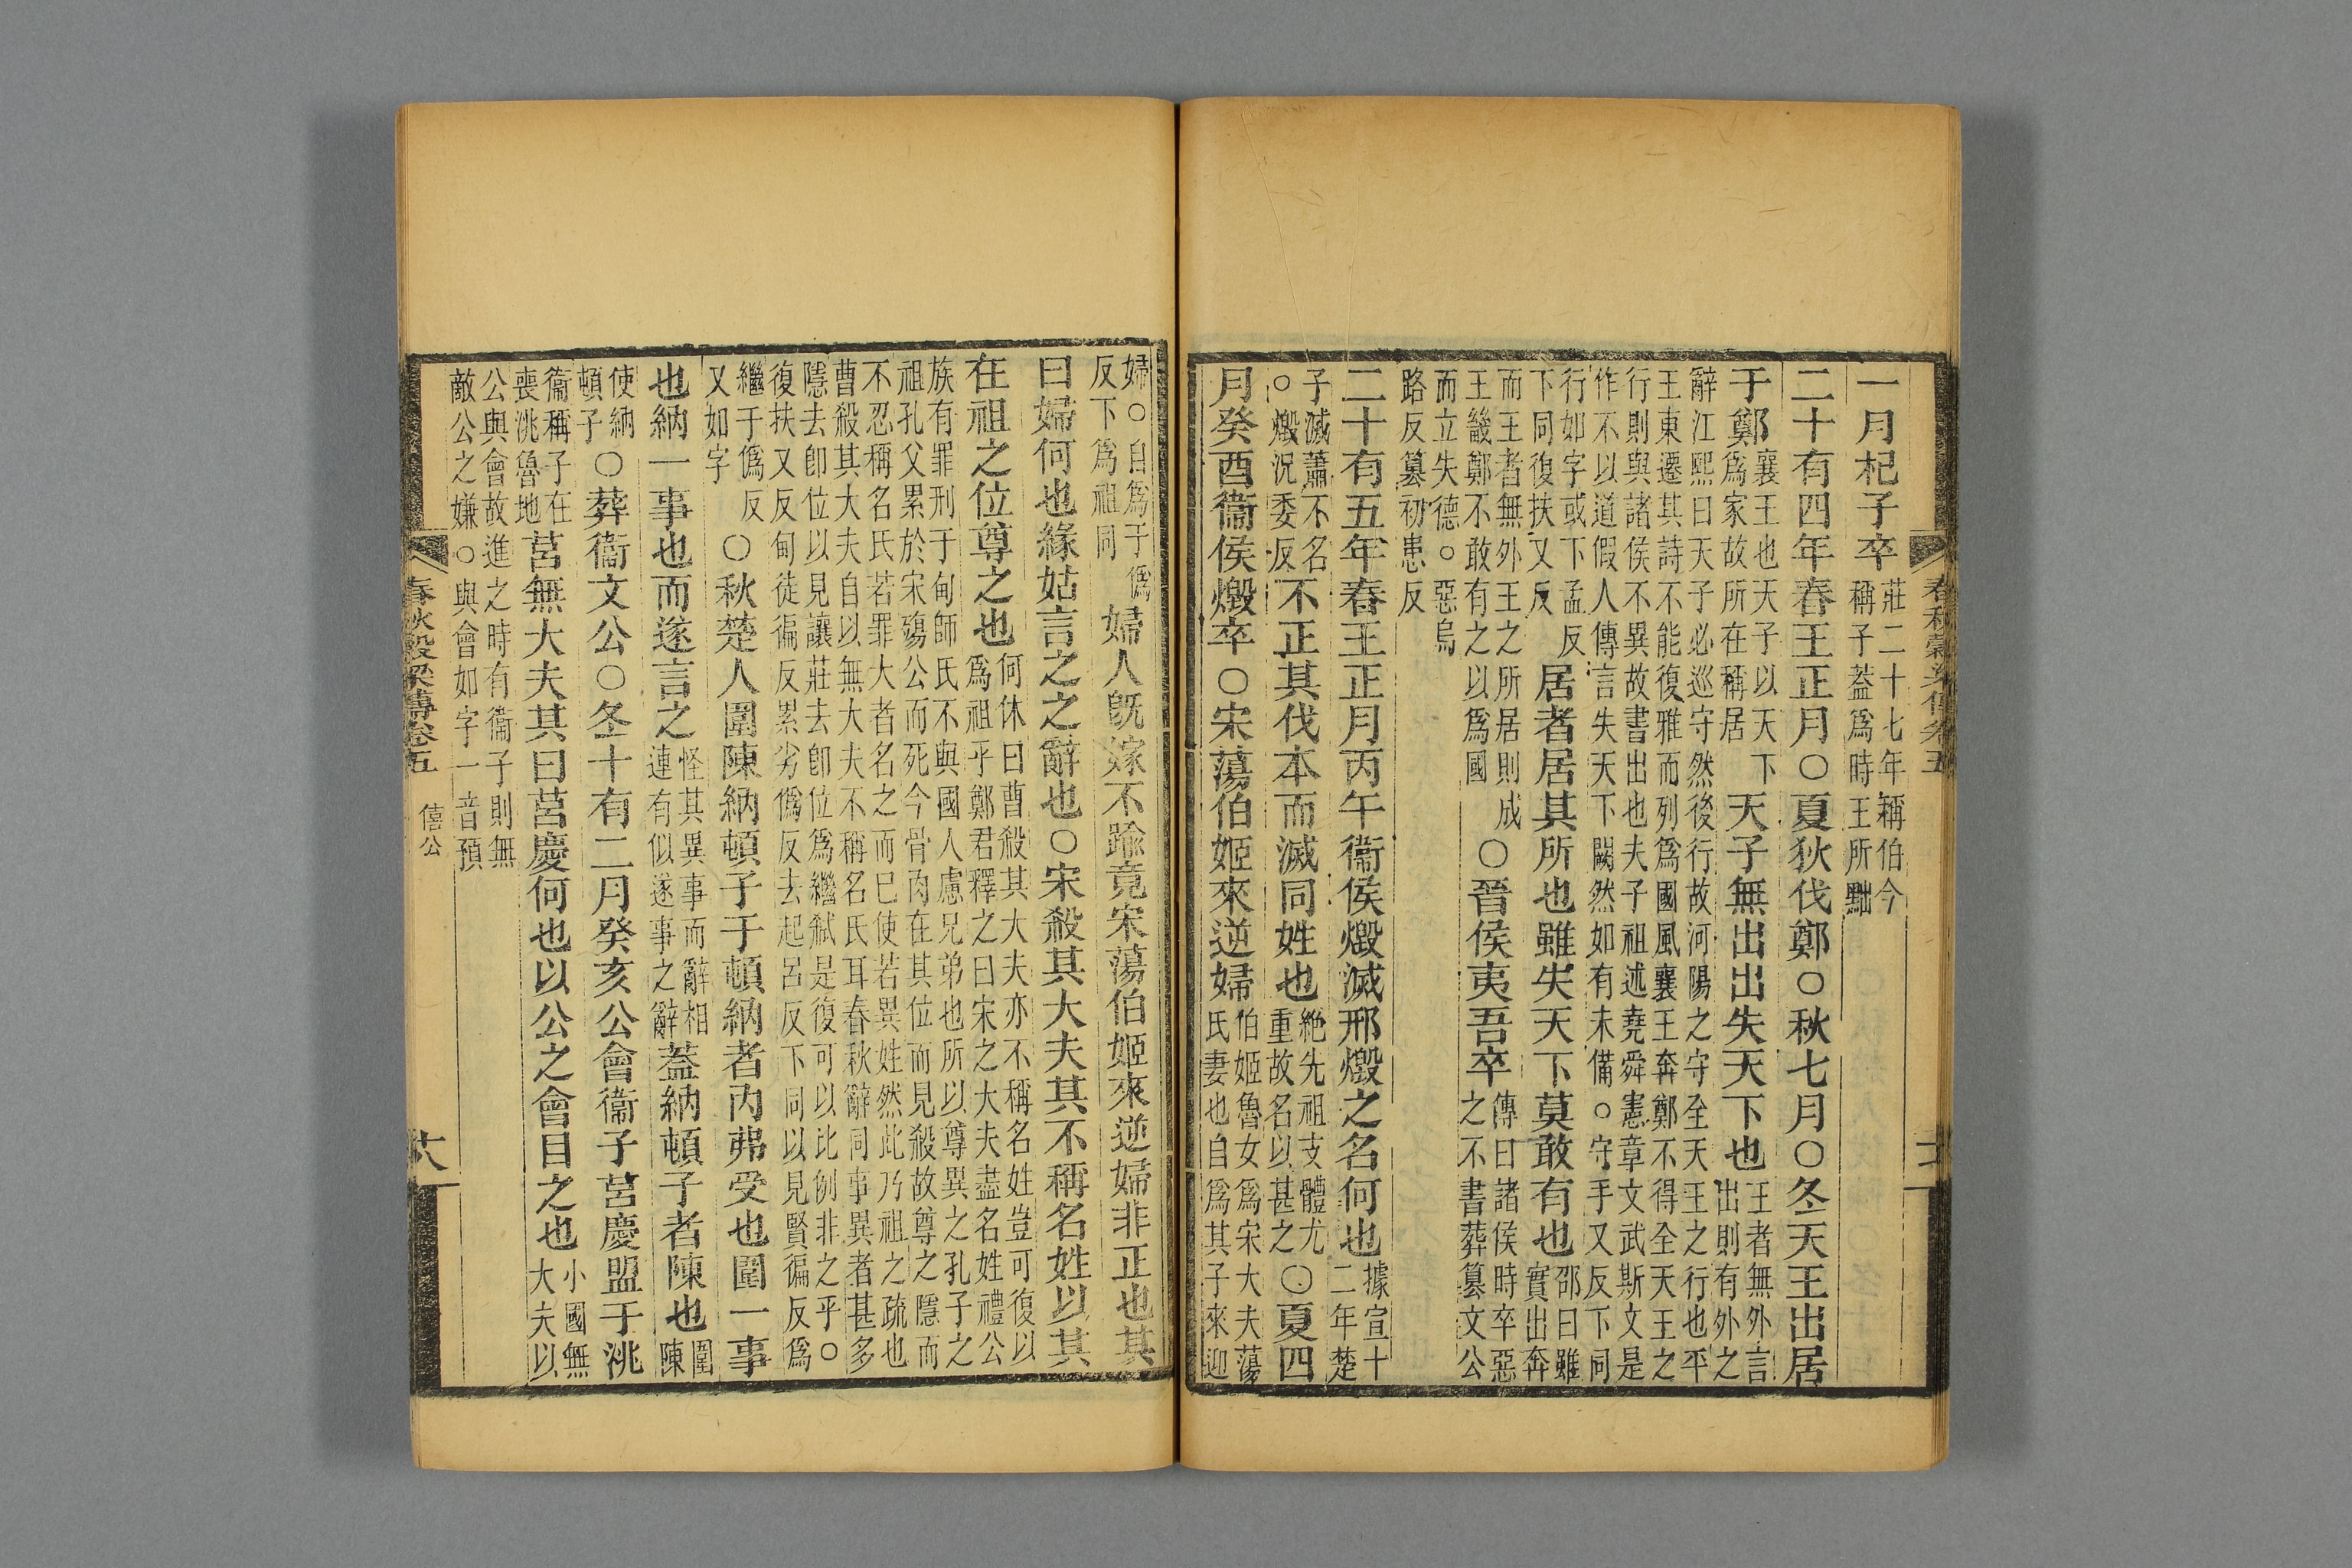 一月杞子卒莊二十七年稱伯今稱子蓋爲時王所黜
二十有四年春王正月○夏狄伐鄭○秋七月○冬天王出居
于鄭襄王也天子以天下爲家故所在稱居天子無出出失天下也王者無外言出則有外之
辭江熙曰天子必巡守然後行故河陽之守全天王之行也平
王東遷其詩不能復雅而列爲國風襄王奔鄭不得全天王之
行則與諸侯不異故書出也夫子祖述堯舜憲章文武斯文是
作不以道假人傳言失天下闕然如有未備○守手又反下同
行如字或下孟反下同復扶又反居者居其所也雖失天下莫敢有也邵曰雖實出奔
而王者無外王之所居則成王畿鄭不敢有之以爲國○晉侯夷吾卒傳曰諸侯時卒惡之不書葬篡文公
而立失德○惡烏路反篡初患反
二十有五年春王正月丙午衞侯燬滅邢燬之名何也據宣十二年楚
子滅蕭不名○燬況委反不正其伐本而滅同姓也絶先祖支體尤重故名以甚之○夏四
月癸酉衞侯燬卒○宋蕩伯姬來逆婦伯姬魯女爲宋大夫蕩氏妻也自爲其子來迎
婦○自爲子僞反下爲祖同婦人旣嫁不踰竟宋蕩伯姬來逆婦非正也其
曰婦何也緣姑言之之辭也○宋殺其大夫其不稱名姓以其
在祖之位尊之也何休曰曹殺其大夫亦不稱名姓豈可復以爲祖乎鄭君釋之曰宋之大夫盡名姓禮公
族有罪刑于甸師氏不與國人慮兄弟也所以尊異之孔子之
祖孔父累於宋殤公而死今骨肉在其位而見殺故尊之隱而
不忍稱名氏若罪大者名之而已使若異姓然此乃祖之疏也
曹殺其大夫自以無大夫不稱名氏耳春秋辭同事異者甚多
隱去卽位以見讓莊去卽位爲繼弑是復可以比例非之乎○
復扶又反甸徒徧反累劣僞反去起呂反下同以見賢徧反爲
繼于僞反又如字○秋楚人圍陳納頓子于頓納者內弗受也圍一事
也納一事也而遂言之怪其異事而辭相連有似遂事之辭蓋納頓子者陳也圍陳
使納頓子○葬衞文公○冬十有二月癸亥公會衞子莒慶盟于洮
衞稱子在喪洮魯地莒無大夫其曰莒慶何也以公之會目之也小國無大夫以
公與會故進之時有衞子則無
敵公之嫌○與會如字一音預
春秋穀梁傳卷五 僖公